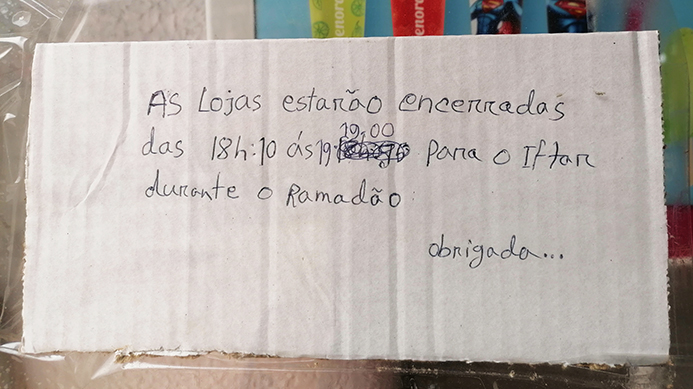 enor
enor
AS Lojas estarão encerradas
19:00
das 18h:10 ás 19: para o Iftar
durante o Ramadão
obrigada...